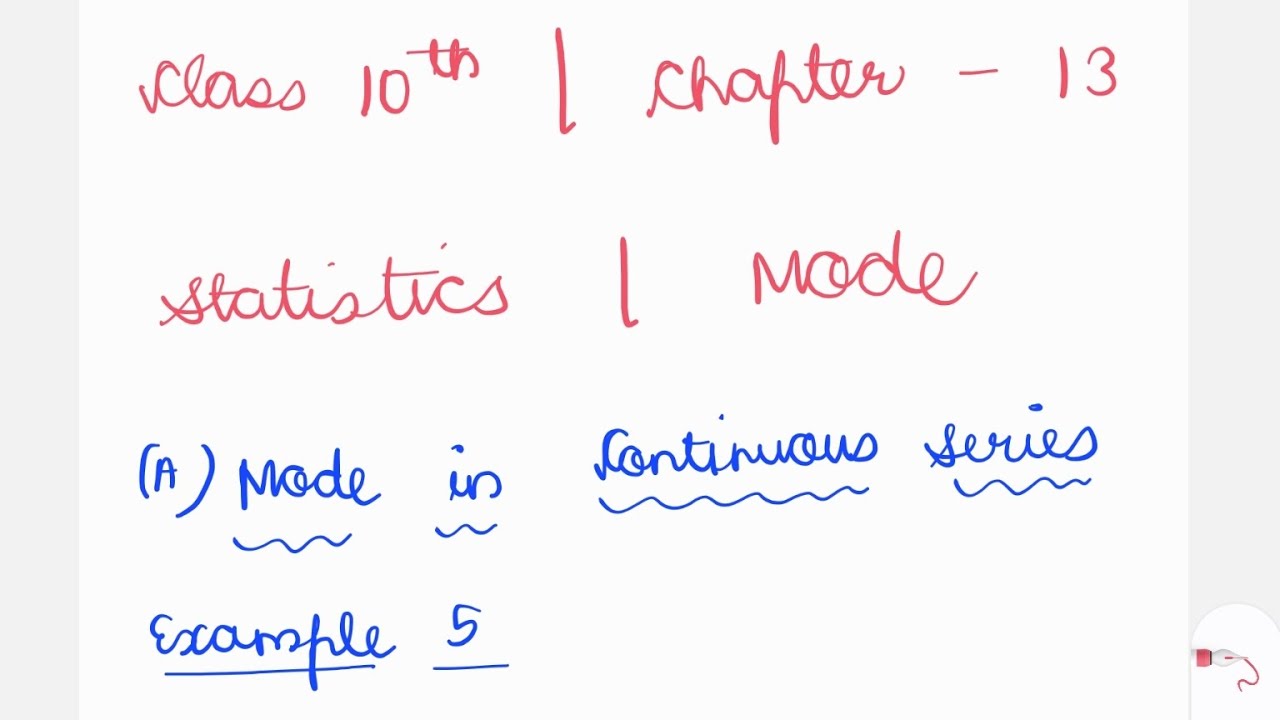 Class 10th | Chapter - 13
Statistics | Mode
(A) Mode in Continuous Series
Example 5